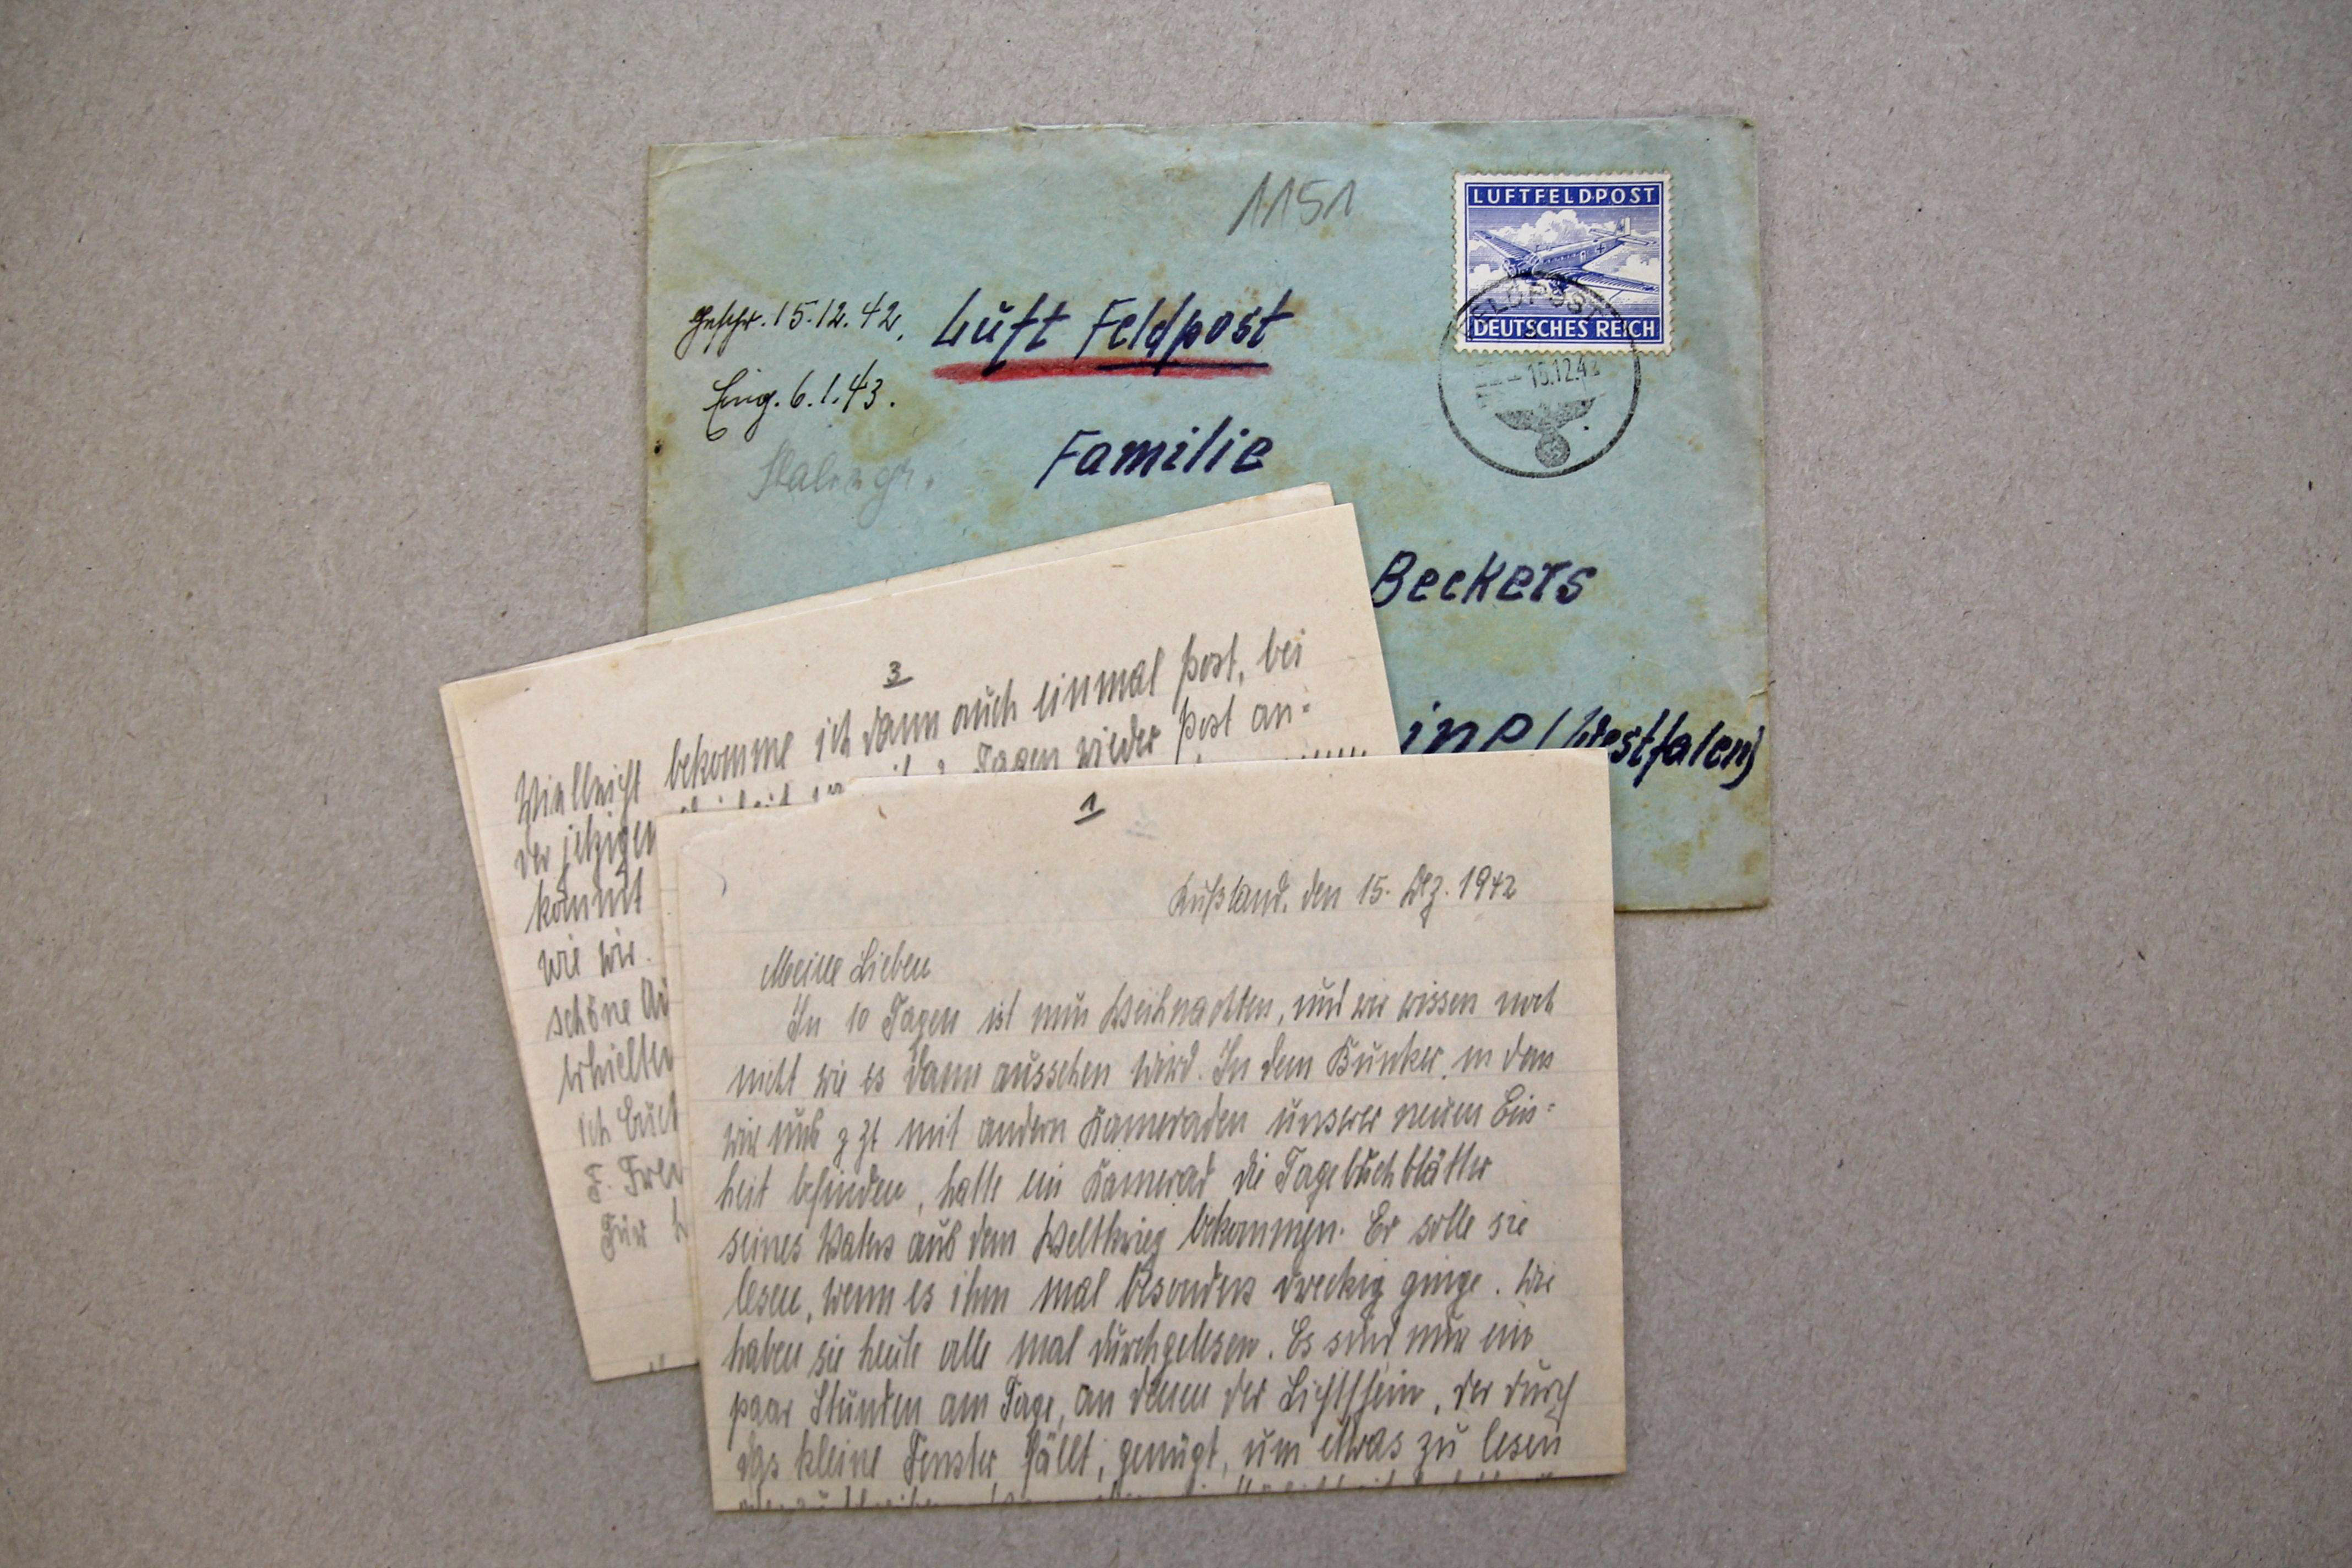 1151
LUFTFELDPOST
DEUTSCHES REICH
FELDPOST
15.12.42
Geschr. 15.12.42.
Luft Feldpost
Eing. 6.1.43.
Stalingr.
Familie
Beckers
ine (Westfalen)
3
Vielleicht bekomme ich dann auch einmal Post, bei
der jetzigen Tagen wieder Post an-
kommt
wie wir.
schöne
erhielten
ich
F.
Für
1
Rußland, den 15. Dez. 1942
Meine Lieben
In 10 Tagen ist nun Weihnachten, und wir wissen noch
nicht wie es dann aussehen wird. In dem Bunker, in dem
wir uns z Zt mit andern Kameraden unserer neuen Ein-
heit befinden, hatte ein Kamerad die Tagebuchblätter
seines Vaters aus dem Weltkrieg bekommen. Er solle sie
lesen, wenn es ihm mal besonders dreckig ginge. Wir
haben sie heute alle mal durchgelesen. Es sind nur ein
paar Stunden am Tage, an denen der Lichtschein, der durch
das kleine Fenster fällt, genügt, um etwas zu lesen